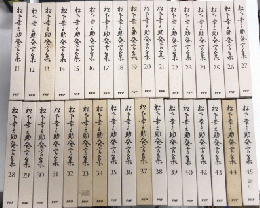 松下幸之助発言集 11 PHP
松下幸之助発言集 12 PHP
松下幸之助発言集 13 PHP
松下幸之助発言集 14 PHP
松下幸之助発言集 15 PHP
松下幸之助発言集 16 PHP
松下幸之助発言集 17 PHP
松下幸之助発言集 18 PHP
松下幸之助発言集 19 PHP
松下幸之助発言集 20 PHP
松下幸之助発言集 21 PHP
松下幸之助発言集 22 PHP
松下幸之助発言集 23 PHP
松下幸之助発言集 24 PHP
松下幸之助発言集 25 PHP
松下幸之助発言集 26 PHP
松下幸之助発言集 27 PHP
松下幸之助発言集 28 PHP
松下幸之助発言集 29 PHP
松下幸之助発言集 30 PHP
松下幸之助発言集 31 PHP
松下幸之助発言集 32 PHP
松下幸之助発言集 33 PHP
松下幸之助発言集 34 PHP
松下幸之助発言集 35 PHP
松下幸之助発言集 36 PHP
松下幸之助発言集 37 PHP
松下幸之助発言集 38 PHP
松下幸之助発言集 39 PHP
松下幸之助発言集 40 PHP
松下幸之助発言集 42 PHP
松下幸之助発言集 43 PHP
松下幸之助発言集 44 PHP
松下幸之助発言集 45 PHP